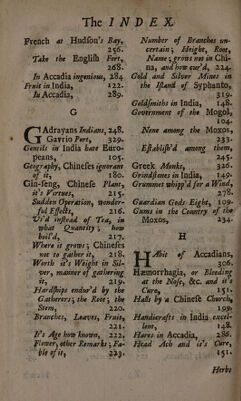 The INDEX
French at Hudson's Bay,
256.
Take the English Fort,
268.
In Accadia ingenious, 284
Fruit in India, 122.
In Accadia, 289.
G
GAdrayans Indians, 248.
Gavrio Port, 329.
Gentils in India hate Euro-
peans, 105.
Geography, Chineses ignorant
of it, 180.
Gin-seng, Chinese Plant,
it's Virtues, 215.
Sudden Operation, wonder-
ful Effects, 216.
Us'd instead of Tea, in
what Quantity; how
boil'd, 217.
Where it grows; Chineses
not to gather it, 218.
Worth it's Weight in Sil-
ver, manner of gathering
it, 219.
Hardships endur'd by the
Gatherers; the Root; the
Stem, 220.
Branches, Leaves, Fruit,
221.
It's Age how known, 222.
Flower, other Remarks; Fa-
ble of it, 223.
Number of Branches un-
certain; Height, Root,
Name; grows not in Chi-
na, and how cur'd, 224.
Gold and Silver Mines in
the Island of Syphanto,
319.
Goldsmiths in India, 148.
Government of the Mogol,
104.
None among the Moxos,
233.
Establish'd among them,
245.
Greek Monks, 326.
Grindstones in India, 149.
Grummet whipp'd for a Wind,
278.
Guardian Gods Eight, 109.
Gums in the Country of the
Moxos, 234.
H
HAbit of Accadians,
306.
Hæmorrhagia, or Bleeding
at the Nose, &c. and it's
Cure, 151.
Halls by a Chinese Church,
199.
Handicrafts in India excel-
lent, 148.
Hares in Accadia, 286.
Head Ach and it's Cure,
151.
Herbs